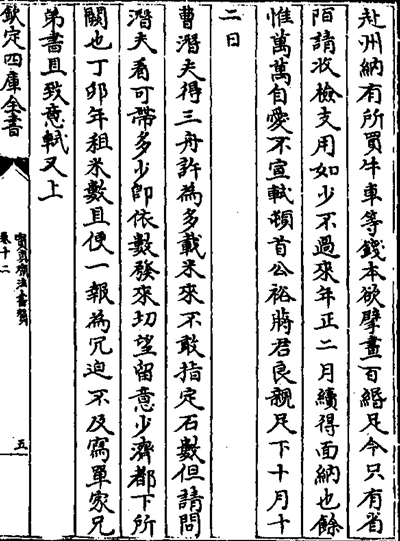 赴州納有所買牛車等錢本欲擘畫百緡足今只有省
陌請收檢支用如少不過來年正二月續得面納也餘
惟萬萬自愛不宣軾頓首公裕蔣君良親足下十月十
二日
曹潛夫得三舟許為多載米來不敢指定石數但請問
潛夫看可帶多少即依數發來切望留意少濟都下所
闕也丁卯年租米數且便一報為冗迫不及寫單家兄
弟書且致意軾又上
欽定四庫全書
寶真齋法書贊
卷十二
五